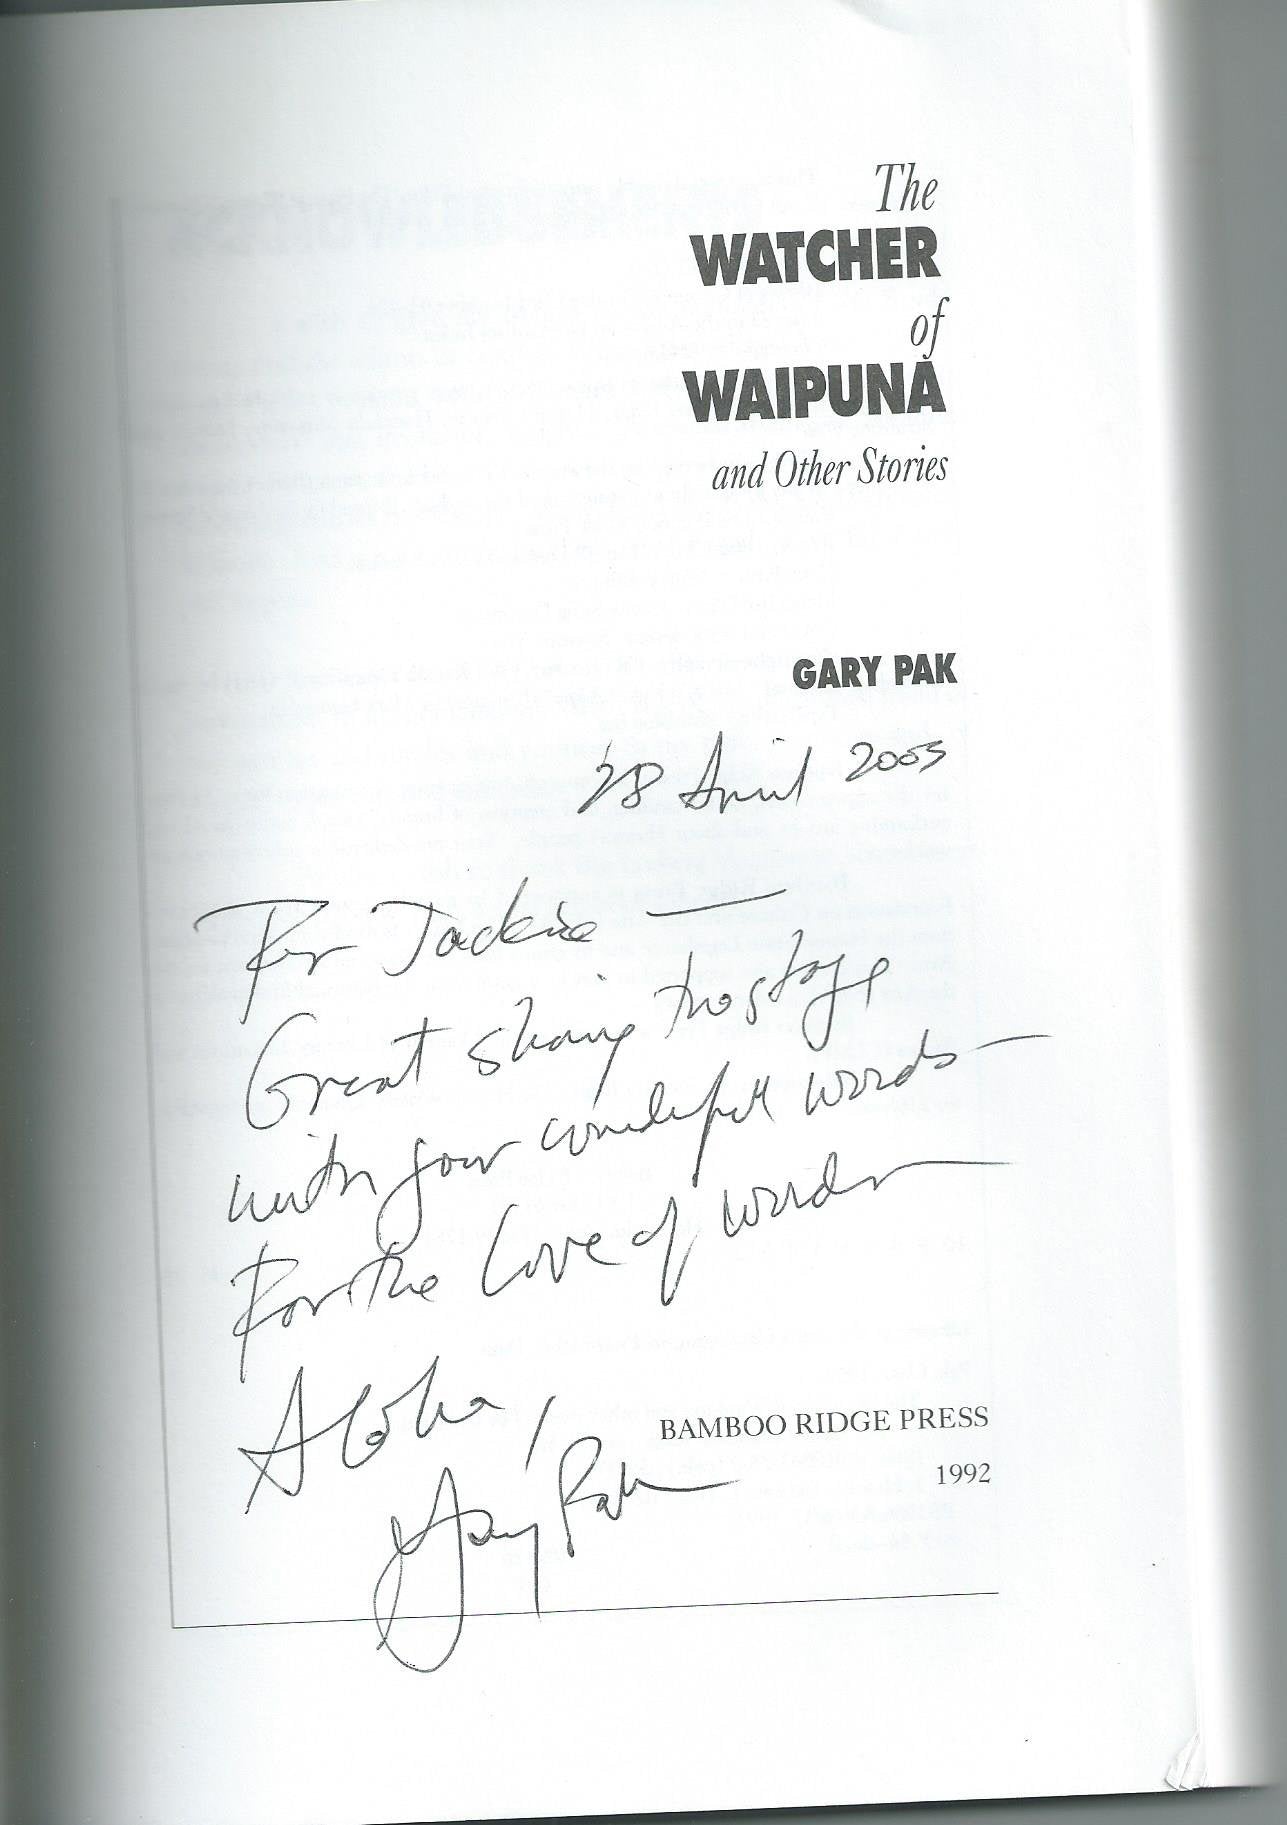 The
WATCHER
of
WAIPUNA
and Other Stories
GARY PAK
28 April 2005
For Jackie —
Great sharing the stage
with your wonderful words —
For the love of words —
Aloha,
Gary Pak
BAMBOO RIDGE PRESS
1992